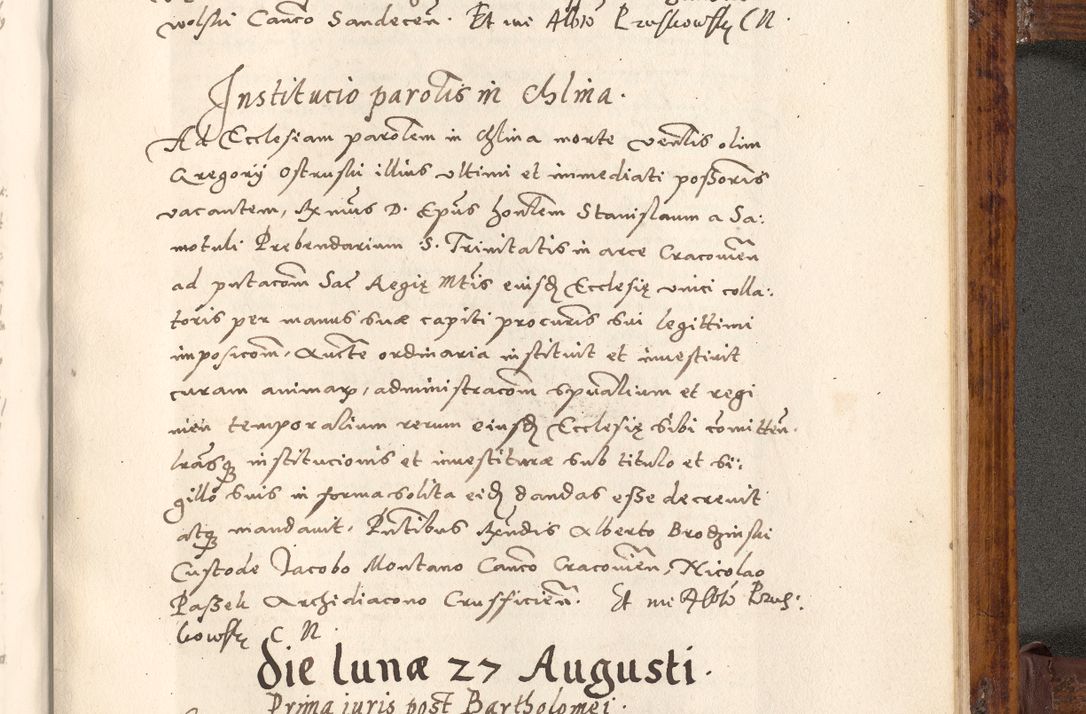 wolski Canco Sandecen. Et me Albto Pruskowsky C N.
Institucio parolis in Chlina.
Ad Ecclesiam parolem in Chlina morte ventis olim
Gregory Ostruski illius ultimi et immediati possoris
vacantem, Rxmus D. Epus hontem Stanislaum a Sa:
motuli Prebendarium S. Trinitatis in arce Cracovien
ad pntacom Sac Regię Mtis eiusd Ecclesię unici colla:
toris per manus suæ capiti procuris sui legittimi
imposicom, Aucte ordinaria instituit et investivit
curam animar, administracom spualium et regi
men temporalium rerum eiusd Ecclesię sibi comitten.
lrasq institucionis et investituræ sub titulo et si:
gillo suis in forma solita eid dandas esse decrevit
atq mandavit. Pntibus Rxndis Alberto Brodzinski
Custode Jacobo Montano Canco Cracovien, Nicolao
Paszek Archidiacono Crusficien. Et me Albto Prus:
kowsky C N.
die lunæ 27 Augusti.
Prima iuris post Bartholomei.